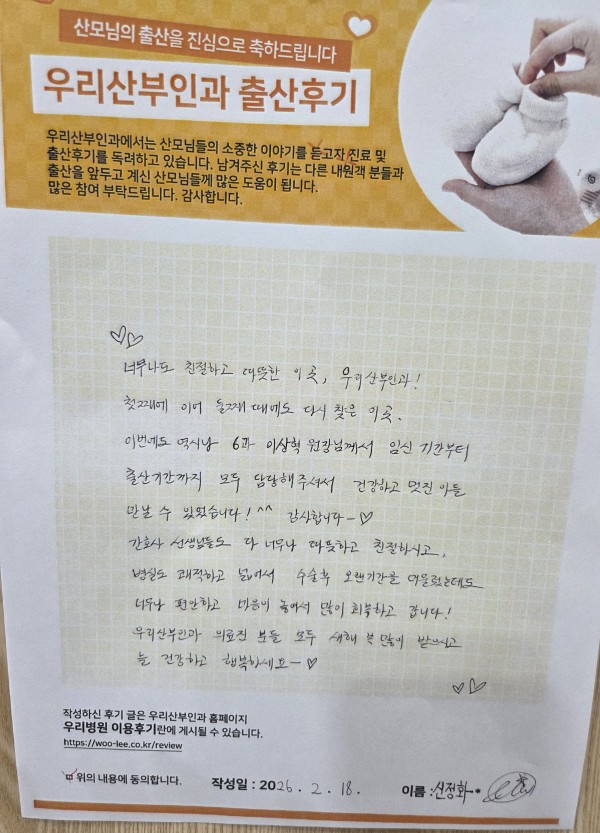 산모님의 출산을 진심으로 축하드립니다
우리산부인과 출산후기
우리산부인과에서는 산모님들의 소중한 이야기를 듣고자 진료 및
출산후기를 독려하고 있습니다. 남겨주신 후기는 다른 내원객 분들과
출산을 앞두고 계신 산모님들께 많은 도움이 됩니다.
많은 참여 부탁드립니다. 감사합니다.
너무나도 친절하고 따뜻한 이곳, 우리산부인과!
첫째에 이어 둘째 때에도 다시 찾은 이곳.
이번에도 역시나 6과 이상혁 원장님께서 임신 기간부터
출산기간까지 모두 담당해주셔서 건강하고 멋진 아들
만날 수 있었습니다! ^^ 감사합니다-♡
간호사 선생님들도 다 너무나 따뜻하고 친절하시고,
병실도 쾌적하고 넓어서 수술후 오랜기간을 머물렀는데도
너무나 편안하고 마음이 놓여서 많이 회복하고 갑니다!
우리산부인과 의료진 분들 모두 새해 복 많이 받으시고
늘 건강하고 행복하세요-♡
작성하신 후기 글은 우리산부인과 홈페이지
우리병원 이용후기란에 게시될 수 있습니다.
https://woo-lee.co.kr/review
위의 내용에 동의합니다. 작성일 : 2026. 2. 18. 이름 : 신정화